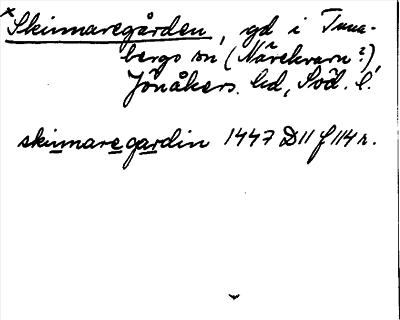 × Skinnaregården, gd i Tuna-
bergs sn (Närekvarn?),
Jönåkers hd, Söd. l.
skinnaregardin 1447 D11 f 114 r.